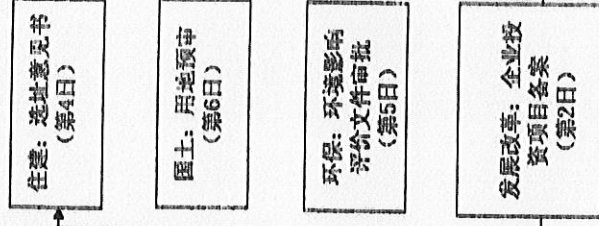 住建：选址意见书
（第4日）
国土：用地预审
（第6日）
环保：环境影响
评价文件审批
（第5日）
发展改革：企业投
资项目备案
（第2日）